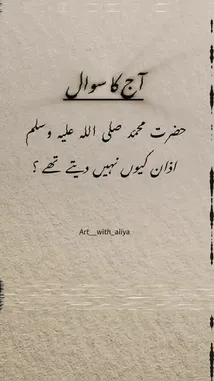 آج کا سوال
حضرت محمد صلی اللہ علیہ وسلم
اذان کیوں نہیں دیتے تھے ؟
Art__with_aliya